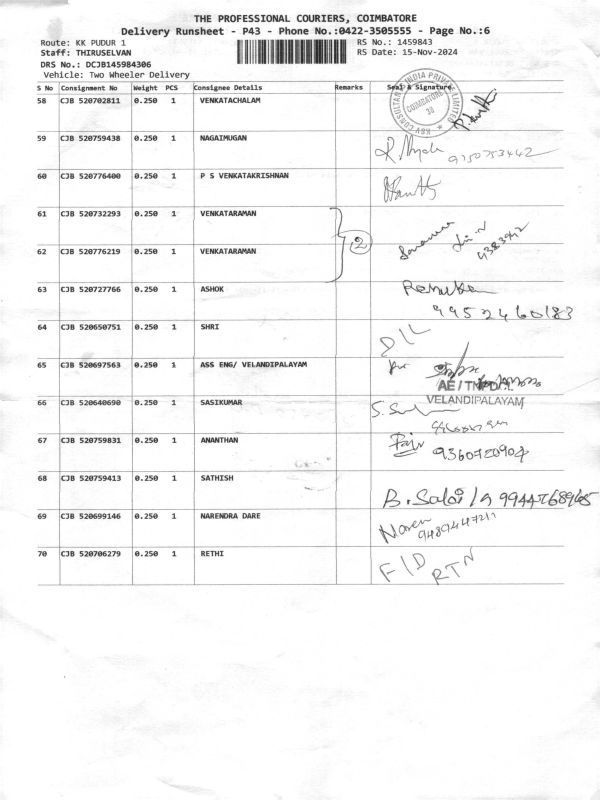 THE PROFESSIONAL COURIERS, COIMBATORE
Delivery Runsheet - P43 - Phone No.:0422-3505555 - Page No.:6
Route: KK PUDUR 1
RS No.: 1459843
Staff: THIRUSELVAN
RS Date: 15-Nov-2024
DRS No.: DCJB145984306
Vehicle: Two Wheeler Delivery
S No Consignment No Weight PCS Consignee Details Remarks Seal & Signature
58 CJB 520702811 0.250 1 VENKATACHALAM
INDIA PRIVATE LIMITED
KSV CONSULTANT
COIMBATORE
59 CJB 520759438 0.250 1 NAGAIMUGAN
9750753442
60 CJB 520776400 0.250 1 P S VENKATAKRISHNAN
61 CJB 520732293 0.250 1 VENKATARAMAN
2
62 CJB 520776219 0.250 1 VENKATARAMAN
63 CJB 520727766 0.250 1 ASHOK
Renuka
9952460183
64 CJB 520650751 0.250 1 SHRI
D/L
65 CJB 520697563 0.250 1 ASS ENG/ VELANDIPALAYAM
AE/TNPDCL
VELANDIPALAYAM
66 CJB 520640690 0.250 1 SASIKUMAR
67 CJB 520759831 0.250 1 ANANTHAN
68 CJB 520759413 0.250 1 SATHISH
69 CJB 520699146 0.250 1 NARENDRA DARE
Naren
70 CJB 520706279 0.250 1 RETHI
F/D RTN